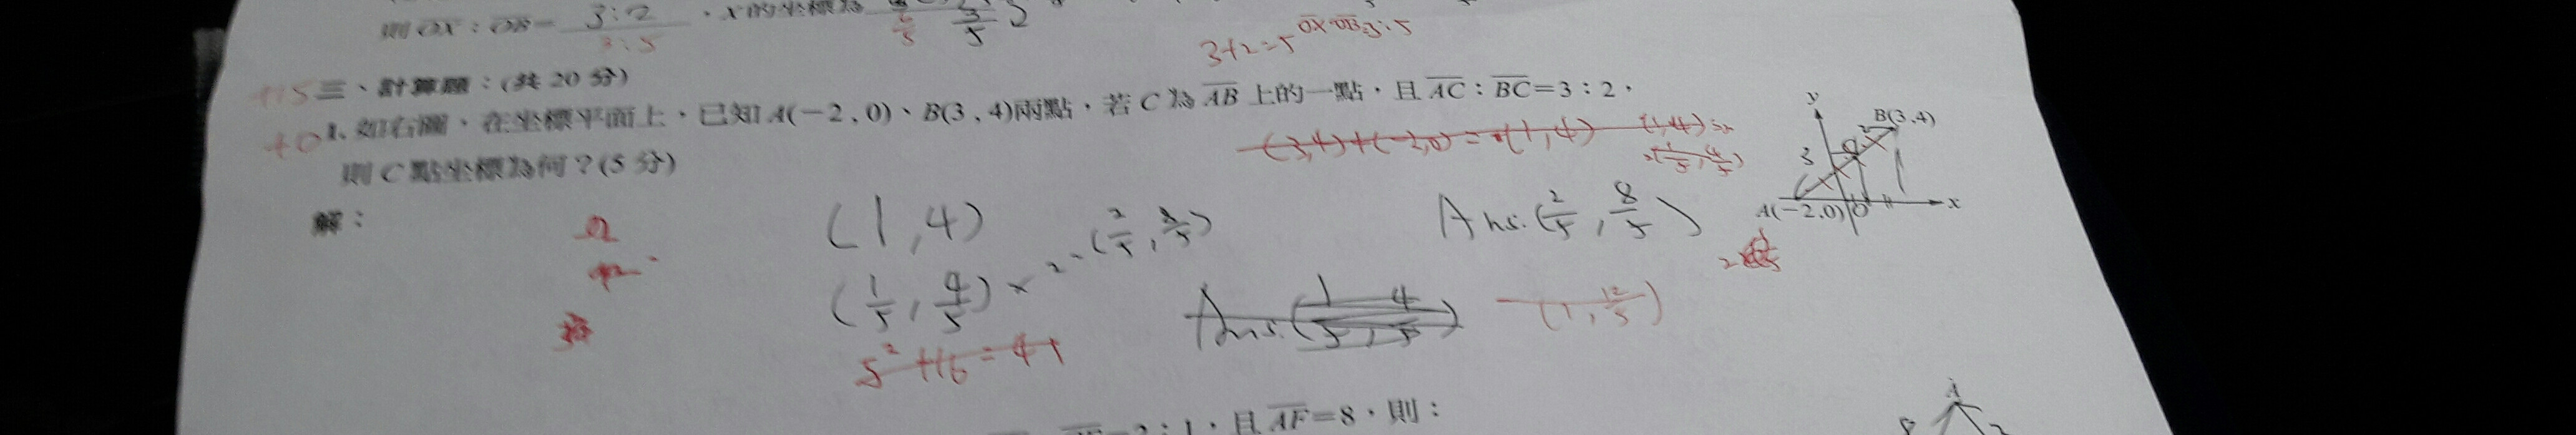 則 OX：OB＝ 3:2 ，X的坐標為 3/5
3:5
3+2=5 OX:OB=3:5
+15 三、計算題：(共 20 分)
+0 1. 如右圖，在坐標平面上，已知 A(−2 , 0)、B(3 , 4)兩點，若 C 為 AB 上的一點，且 AC：BC＝3：2，
(3,4)+(-2,0)=(1,4)
則 C 點坐標為何？(5 分)
解：
(1,4)
(1/5, 4/5)×2=(2/5, 8/5)
Ans.(2/5, 8/5)
Ans.(1/5, 4/5)
(1, 12/5)
5²+16=41
y
B(3,4)
3
2
A(−2,0)
O
x
2：1，且 AF＝8，則：
A
8
2